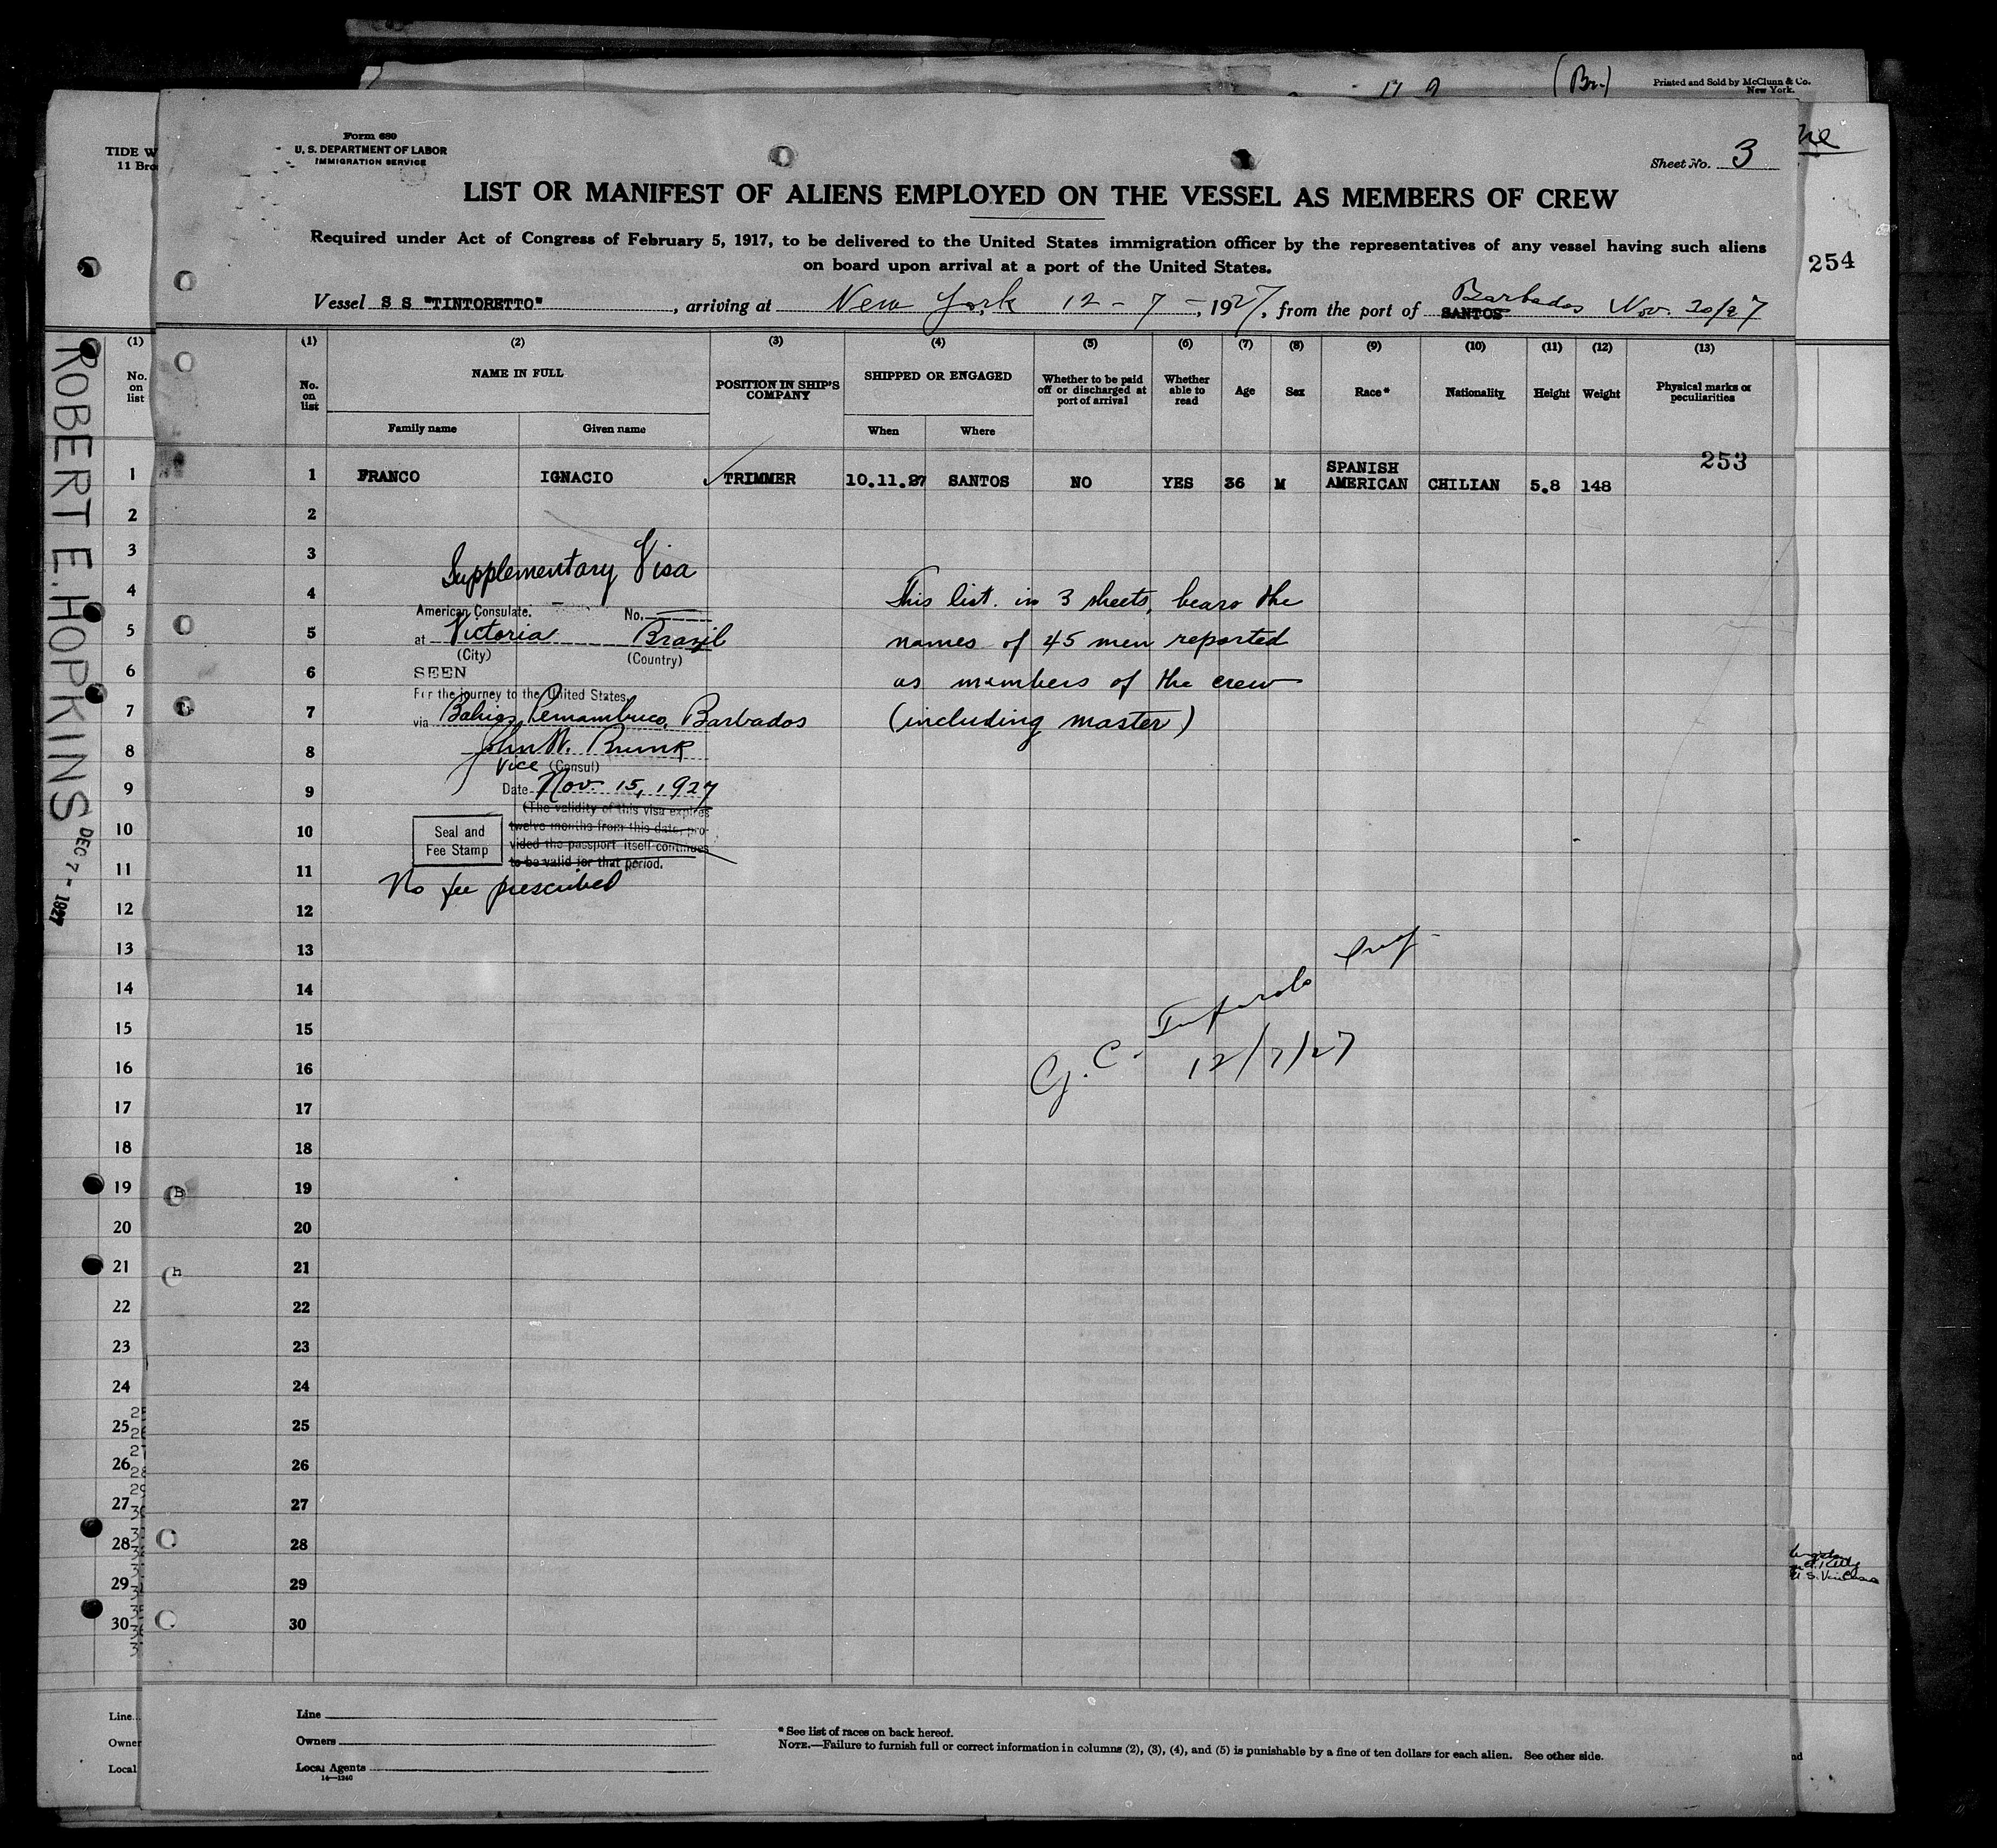 (Br.)
Printed and Sold by McClunn & Co.
New York.
TIDE W
11 Bro
254
ROBERT E. HOPKINS
DEC 7 - 1927
Form 689
U. S. DEPARTMENT OF LABOR
IMMIGRATION SERVICE
Sheet No. 3
LIST OR MANIFEST OF ALIENS EMPLOYED ON THE VESSEL AS MEMBERS OF CREW
Required under Act of Congress of February 5, 1917, to be delivered to the United States immigration officer by the representatives of any vessel having such aliens
on board upon arrival at a port of the United States.
Vessel S S "TINTORETTO", arriving at New York 12 - 7 -, 1927, from the port of SANTOS Barbados Nov. 30/27
(1) (1) (2) (3) (4) (5) (6) (7) (8) (9) (10) (11) (12) (13)
No. on list
No. on list
NAME IN FULL
Family name
Given name
POSITION IN SHIP'S COMPANY
SHIPPED OR ENGAGED
When
Where
Whether to be paid off or discharged at port of arrival
Whether able to read
Age
Sex
Race*
Nationality
Height
Weight
Physical marks or peculiarities
253
1 1 FRANCO IGNACIO TRIMMER 10.11.27 SANTOS NO YES 36 M SPANISH AMERICAN CHILIAN 5.8 148
2 2
3 3
4 4
5 5
6 6
7 7
8 8
9 9
10 10
11 11
12 12
13 13
14 14
15 15
16 16
17 17
18 18
19 19
20 20
21 21
22 22
23 23
24 24
25 25
26 26
27 27
28 28
29 29
30 30
Supplementary Visa
American Consulate. No.
at Victoria Brazil
(City) (Country)
SEEN
For the journey to the United States,
via Bahia, Pernambuco, Barbados
John W. Brunk
Vice (Consul)
Date Nov. 15, 1927
(The validity of this visa expires
twelve months from this date, pro-
vided the passport itself continues
to be valid for that period.
Seal and
Fee Stamp
No fee prescribed
This list, in 3 sheets, bears the
names of 45 men reported
as members of the crew
(including master)
12/7/27
Line
Owner
Local
Line
Owners
Local Agents
14—1240
* See list of races on back hereof.
NOTE.—Failure to furnish full or correct information in columns (2), (3), (4), and (5) is punishable by a fine of ten dollars for each alien. See other side.